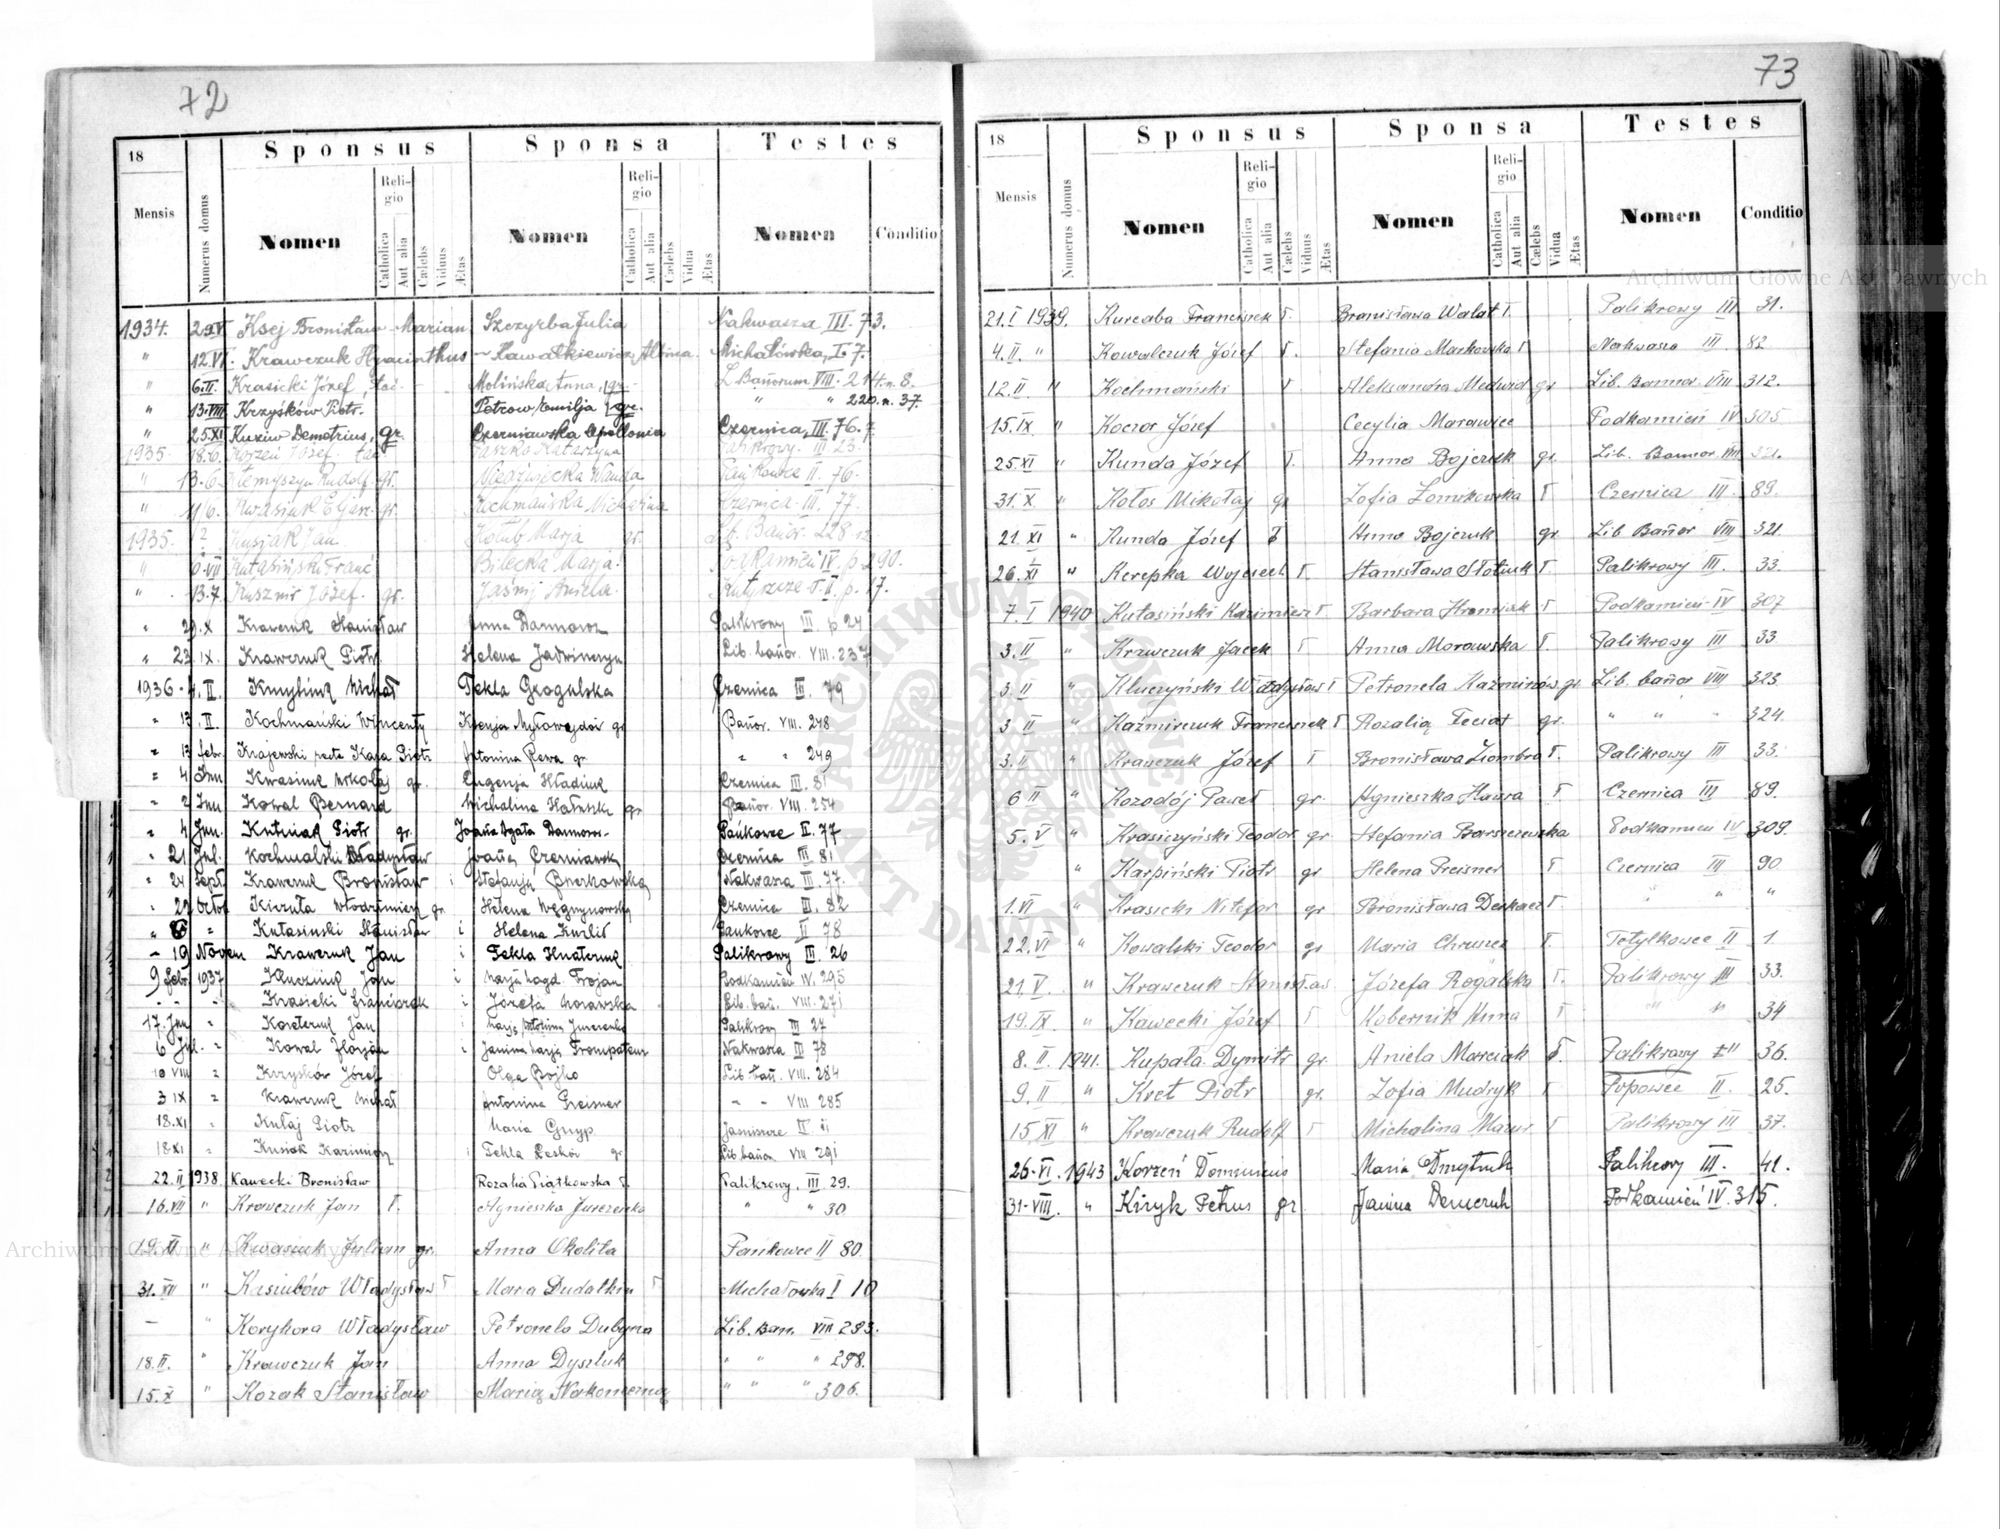 72
18
Sponsus
Sponsa
Testes
Mensis
Numerus domus
Nomen
Religio
Catholica
Aut alia
Cælebs
Viduus
Ætas
Nomen
Religio
Catholica
Aut alia
Cælebs
Vidua
Ætas
Nomen
Conditio
1934. 29.IV Ksej Bronisław Marian Szczyrba Julia Nakwasza III. 73.
" 12.VI. Krawczuk Hyacinthus Albina Michałówka, I. 7.
" 6.II. Krasicki Józef, łac. Molińska Anna, gr. L. Bańorum VIII. 214. n. 8.
" 13.VIII Krzyśków Piotr. Petrow Emilja gr. " " 220. n. 37.
" 25.XI Kuziw Demetrius, gr. Czerniawska Apollonia Czernica, III. 76. 7
1935. 18.6. Korzeń Józef. łac Katarzyna Palikrowy. III. 23.
" 13.6. Rudolf gr. Niedźwiecka Wanda Pańkowce II. 76.
" 11/6. Kwasiuk gr. Kuchmańska Michalina Czernica III. 77.
1935. Kusjak Jan Hołub Marja gr. Lib. Bańor. 228
" VII Kutasiński Franc Bilecka Marja! Podkamień IV. p. 290.
" 13.7. Kusznir Józef. gr. Jaśnij Aniela. II. p. 17.
" 29.X Krawczuk Stanisław Anna Palikrowy III. p 24
" 23 IX. Krawczuk Piotr Helena Lib. bańor. VIII. 237
1936 - 4. II. Michał Tekla Grogulska Czernica III. 79
" 13 .II. Kochmański Wincenty Ksenja gr Bańor. VIII. 248
" 13 febr. Krajewski recte Kapa Piotr Antonina Rewa gr. " " 249
" 4 Jun Kwasiuk Mikołaj gr. Eugenja Hładiuk Czernica III. 81
" 2 Jun Kowal Bernard Michalina gr Bańor. VIII. 254
" 4 Jun. Piotr gr. Joanna Agata Pańkowce II. 77
" 21 Jul. Kochmalski Władysław Joanna Czerniawska Czernica III 81
" 24 Sept. Krawczuk Bronisław i Stefanja Nakwasza III. 77.
" 22 Octob Kiczuła Włodzimierz gr. Helena Węgrzynowska Czernica III. 82
" " Kutasiński Stanisław i Helena Pankowce II 78
- 19 Novem Krawczuk Jan i Tekla Palikrowy III. 26
9 febr. 1937 Jan i Marja Magd. Trojan Podkamień IV. 295
- - " Krasicki i Józefa Morawska Lib. bań. VIII. 271
17. Jan " Jan i Palikrowy III 27
6 Jul. " Kowal Florjan i Janina Marja Nakwasza III 78
10 VIII " Krzyśków Józef Olga Bojko Lib. bań. VIII. 284
3 IX " Krawczuk Michał Antonina Greisner - - VIII 285
18.XI " Kułaj Piotr Maria Gryp
18.XI " Kusiak Kazimierz Tekla gr. Lib. bańor VIII 291
22.II 1938 Kawecki Bronisław Rozalia Piątkowska ł. Palikrowy. III 29.
16.VII " Krawczuk Jan ł. Agnieszka Jurczeńka " " 30
19. XI " Kwasiuk Julian gr. Anna Okolita Pańkowce II 80.
31. XII " Władysław Maria Dudałkin Michałowka I 10
— " Korykora Władysław Petronela Dubyna Lib. Ban. VIII 293.
18.II. " Krawczuk Jan Anna Dyszluk " " " 298.
15.X " Kozak Stanisław Maria Nakonieczna " " " 306.
73
18
Sponsus
Sponsa
Testes
Mensis
Numerus domus
Nomen
Religio
Catholica
Aut alia
Cælebs
Viduus
Ætas
Nomen
Religio
Catholica
Aut alia
Cælebs
Vidua
Ætas
Nomen
Conditio
21.I 1939. Kureaba Franciszek ł. Bronisława Walat ł. Palikrowy III 31.
4.II. " Kowalczuk Józef ł. Stefania Markowska ł Nakwasza III. 82
12.II " Kochmański ł Aleksandra Medwid gr Lib. Bannor VIII 312.
15.IX " Koczor Józef Cecylia Marawiec Podkamień IV 305
25.XI " Kunda Józef ł. Anna Bojczuk gr. Lib. Bannor VIII 321.
31.X " Kołos Mikołaj gr Zofia Łomikowska ł Czernica III. 89.
21.XI " Kunda Józef ł Anna Bojczuk gr. Lib Bañor VIII 321.
26.XI " Kerepka Wojciech ł. Stanisława Słotiuk ł. Palikrowy III. 33.
7. I 1940 Kutasiński Kazimierz ł Barbara Hromiak ł Podkamień IV 307
3.II " Krawczuk Jacek ł Anna Morawska ł. Palikrowy III 33
3.II " Kluczyński Władysław ł Petronela Kaźmirów gr. Lib. bañor VIII 323.
3 II " Kaźmirczuk Franciszek ł Rozalia Feciat gr. " " " 324.
3.II " Krawczuk Józef ł Bronisława Ziombra ł. Palikrowy III 33.
6 II " Kozodój Paweł gr. Agnieszka Hawra ł Czernica III 89.
5. V " Krasiczyński Teodor gr. Stefania Barszczewska Podkamień IV 309.
" Karpiński Piotr gr Helena Preisner ł Czernica III 90
1.VI " Krasicki Nikefor gr Bronisława Derkacz ł. " " "
22.VI " Kowalski Teodor gr Maria Chruszcz ł. Potylkowce II 1.
21.V. " Krawczuk Stanisław Józefa Rogalska ł. Palikrowy III 33.
19.IX " Kawecki Józef ł Kobernik Anna ł " " 34
8. II. 1941. Kupała Dymitr gr. Aniela Marciak ł. Palikrowy III 36.
9.II " Kret Piotr gr. Zofia Mudryk ł Popowce II. 25.
15.XI " Krawczuk Rudolf ł Michalina Mazur ł Palikrowy III 37.
26.VI. 1943 Korzeń Dominicus Maria Dmytruk Palikrowy III. 41.
31-VIII. " Kiryk Petrus gr. Janina Demczuk Podkamień IV. 315.
Archiwum Główne Akt Dawnych
Archiwum Główne Akt Dawnych
ARCHIWUM GŁÓWNE AKT DAWNYCH